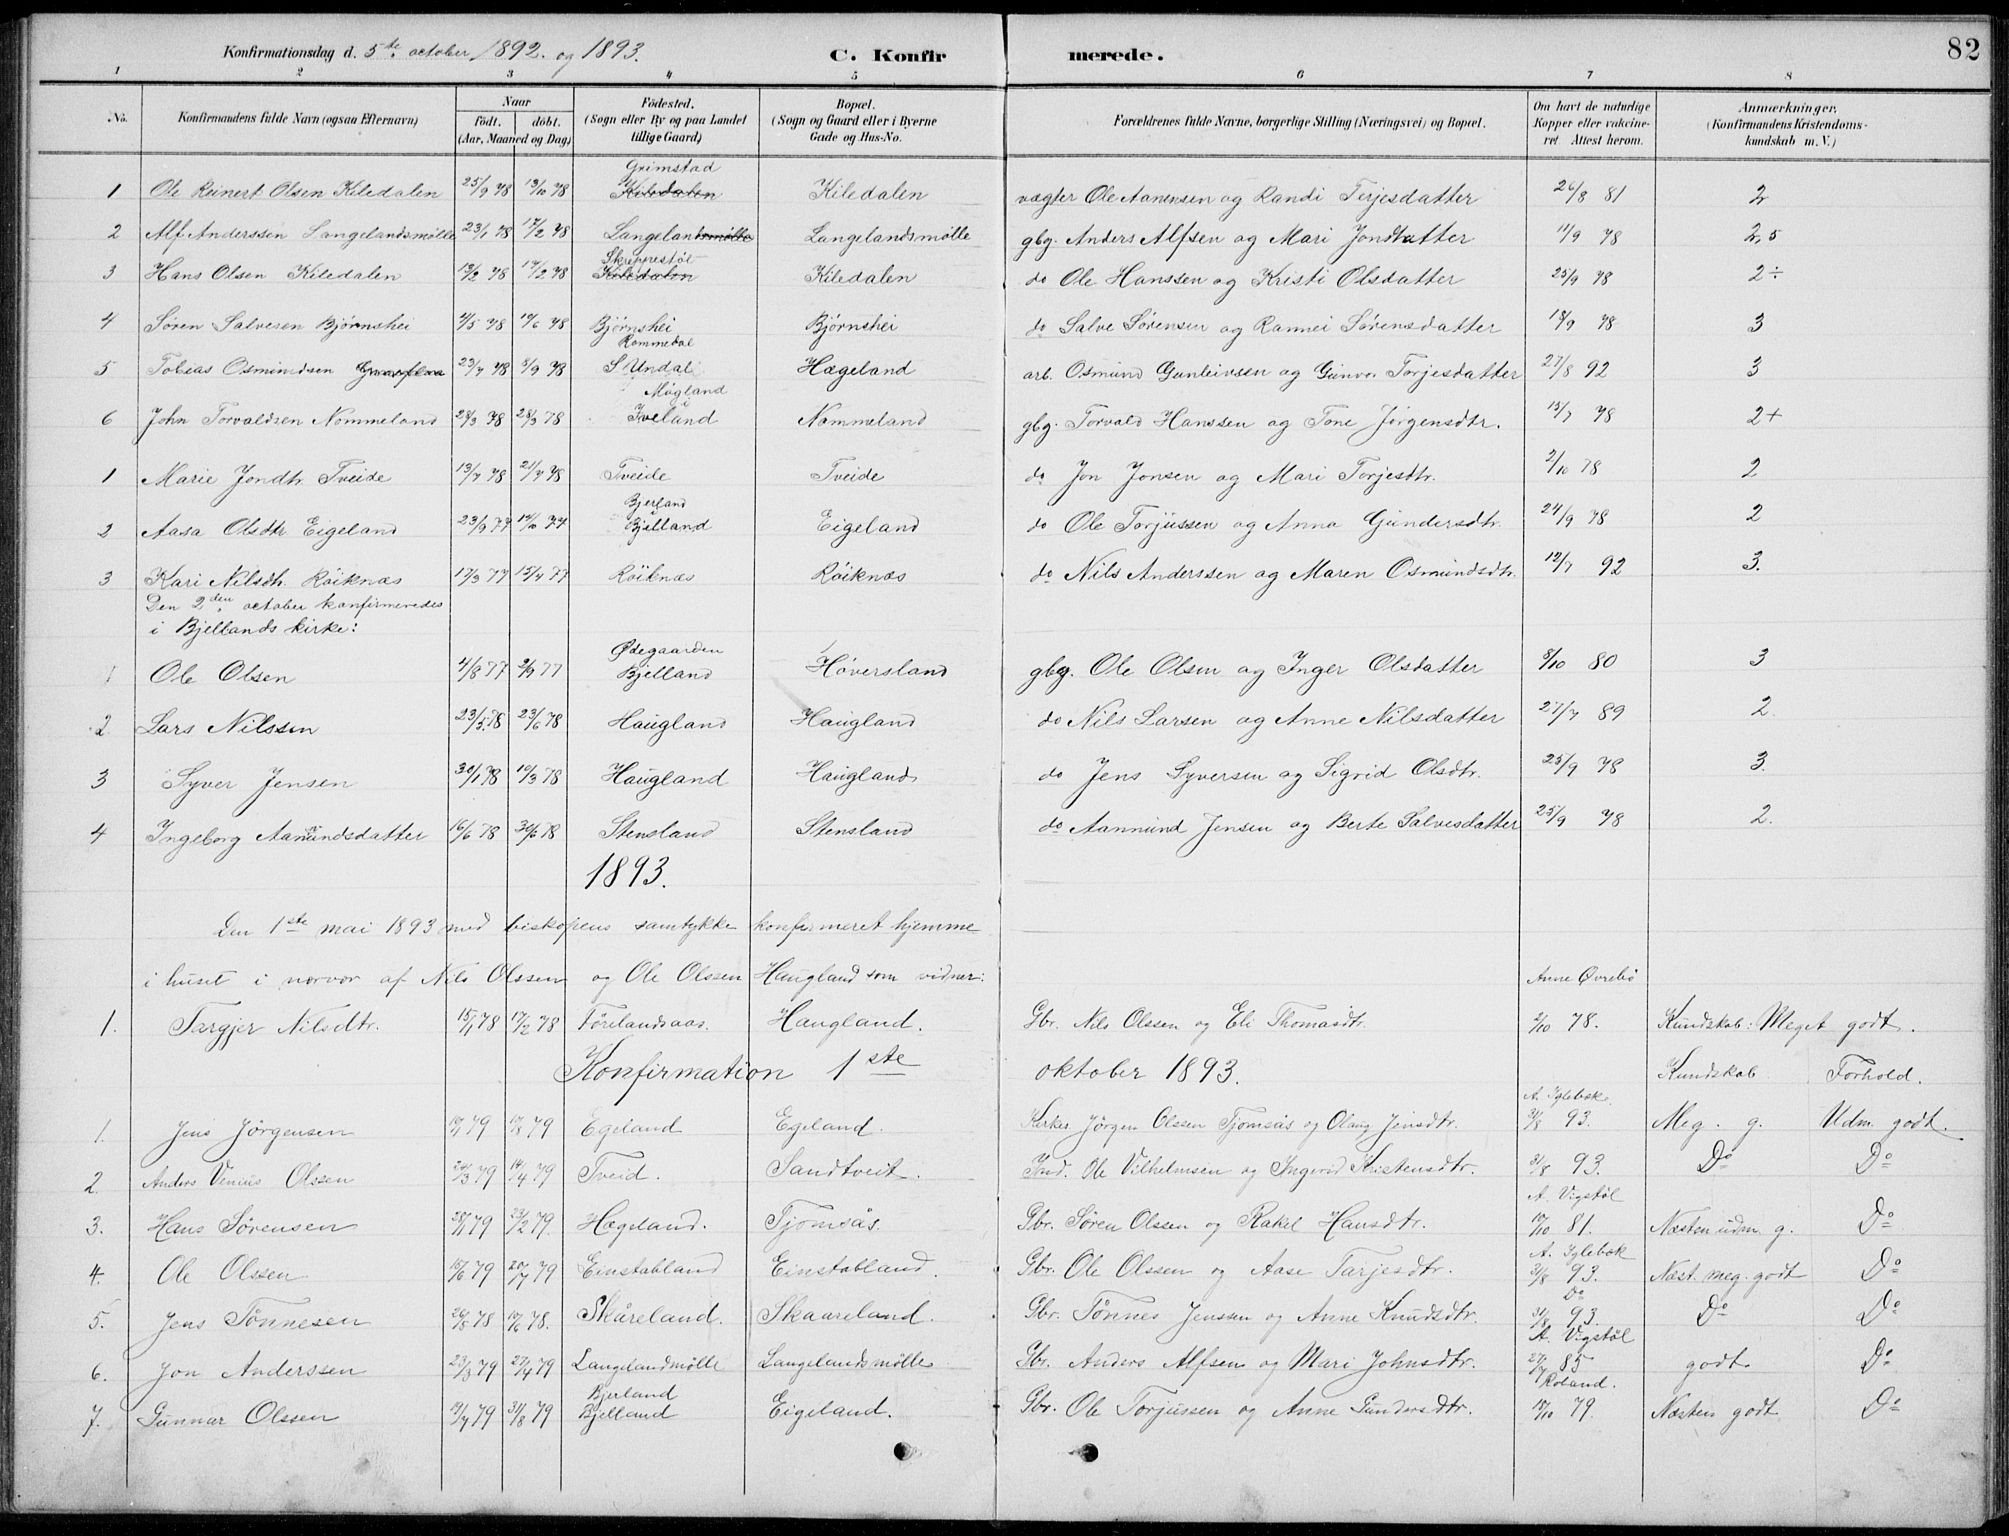 Konfirmationsdag d. 5te october 1892. og 1893. C. Konfirmerede. 82
1 2 3 4 5 6 7 8
No. Konfirmandens fulde Navn (ogsaa Efternavn) Naar født. døbt. (Aar, Maaned og Dag) Fødested. (Sogn eller By og paa Landet tillige Gaard) Bopæl. (Sogn og Gaard eller i Byerne Gade og Hus-No. Forældrenes fulde Navne, borgerlige Stilling (Næringsvei) og Bopæl. Om havt de naturlige Kopper eller vakcineret Attest herom. Anmærkninger. (Konfirmandens Kristendomskundskab m. V.)
Grimstad
1 Ole Reinert Olsen Kiledalen 25/9 78 13/10 78 Kiledalen Kiledalen vægter Ole Aanensen og Randi Terjesdatter 26/8 81 2
2 Alf Anderssen Langelandsmølle 23/1 78 17/2 78 Langelandsmølle Langelandsmølle gbg. Anders Alfsen og Mari Jondatter 11/9 78 2,5
Skreppestøl
3 Hans Olsen Kiledalen 12/2 78 17/2 78 Kiledalen Kiledalen do Ole Hanssen og Kristi Olsdatter 25/9 78 2÷
4 Søren Salvesen Bjørnshei 4/5 78 10/6 78 Bjørnshei Bjørnshei do Salve Sørensen og Rannei Sørensdatter 18/9 78 3
Rommedal
5 Tobias Osmundsen 23/7 78 8/9 78 S Undal Hægeland arb. Osmund Gunleivsen og Gunvor Torjesdatter 27/8 92 3
Mogland i
6 John Torvaldsen Nommeland 28/3 78 28/3 78 Iveland Nommeland gbg. Torvald Hanssen og Tone Jørgensdtr. 15/7 78 2+
1 Marie Jondtr Tveide 13/7 78 21/7 78 Tveide Tveide do Jon Jonsen og Mari Torjesdtr. 2/10 78 2
Bjerland
2 Aasa Olsdtr Eigeland 23/9 77 14/10 77 Bjelland Eigeland do Ole Torjussen og Anna Gundersdtr. 24/9 78 2
3 Kari Nilsdtr. Røiknæs 17/3 77 15/4 77 Røiknæs Røiknæs do Nils Anderssen og Maren Osmundsdtr. 12/7 92 3.
Den 2den october konfirmeredes
i Bjellands kirke:
Ødegaarden
1 Ole Olsen 4/8 77 2/9 77 Bjelland Høversland gbg. Ole Olsen og Inger Olsdatter 8/10 80 3
2 Lars Nilssen 23/5 78 23/6 78 Haugland Haugland do Nils Larsen og Anne Nilsdatter 27/7 89 2.
3 Syver Jensen 30/1 78 10/3 78 Haugland Haugland do Jens Syversen og Sigrid Olsdtr. 25/9 78 3.
4 Ingeborg Aamundsdatter 16/6 78 30/6 78 Stensland Stensland do Aanmund Jensen og Berte Salvesdatter 25/9 78 2.
1893.
Den 1ste mai 1893 med biskopens samtykke konfirmeret hjemme
i huset i nærvær af Nils Olssen og Ole Olssen Haugland som vidner: Anne Øvrebø
1. Targjer Nilsdtr. 15/1 78 17/2 78 Førelandsaas. Haugland. Gbr. Nils Olssen og Eli Thomasdtr. 2/10 78. Kundskab: Meget godt.
Konfirmation 1ste oktober 1893. Kundskab Forhold.
A. Iglebæk.
1. Jens Jörgensen 79 79 Egeland Egeland. Kirkes. Jörgen Olssen Tjomsås og Olaug Jensdtr. 31/8 93. Meg. g. Udm. godt.
2. Anders Venius Olssen 24/3 79 14/4 79 Tveid. Sandtveit. Ind. Ole Vilhelmsen og Ingerid Kristensdtr. 31/8 93. Do Do
A. Vigstöl
3. Hans Sörensen 28/1 79 23/2 79. Hægeland. Tjomsås. Gbr. Sören Olssen og Rakel Hansdtr. 10/10 81. Næsten udm. g. Do
A. Iglebæk
4. Ole Olssen 15/6 79 20/7 79 Einstabland Einstabland. Gbr. Ole Olssen og Aase Tarjesdtr. 31/8 93. Næst. meg. godt Do
Do
5. Jens Tönnesen 26/5 78 10/6 78. Skåreland. Skaareland. Gbr. Tönnes Jenssen og Anne Knudsdtr. 31/8 93. Do Do
A. Vigstöl
6. Jon Anderssen 23/3 79 27/4 79 Langelandmölle Langelandsmölle Gbr. Anders Alfsen og Mari Johnsdtr. 27/7 85 godt Do
Bjerland Roland.
7. Gunnar Olssen 19/7 79 31/8 79 Bjelland Eigeland. Gbr. Ole Torjussen og Anne Gundersdtr. 10/10 79. Næsten godt Do